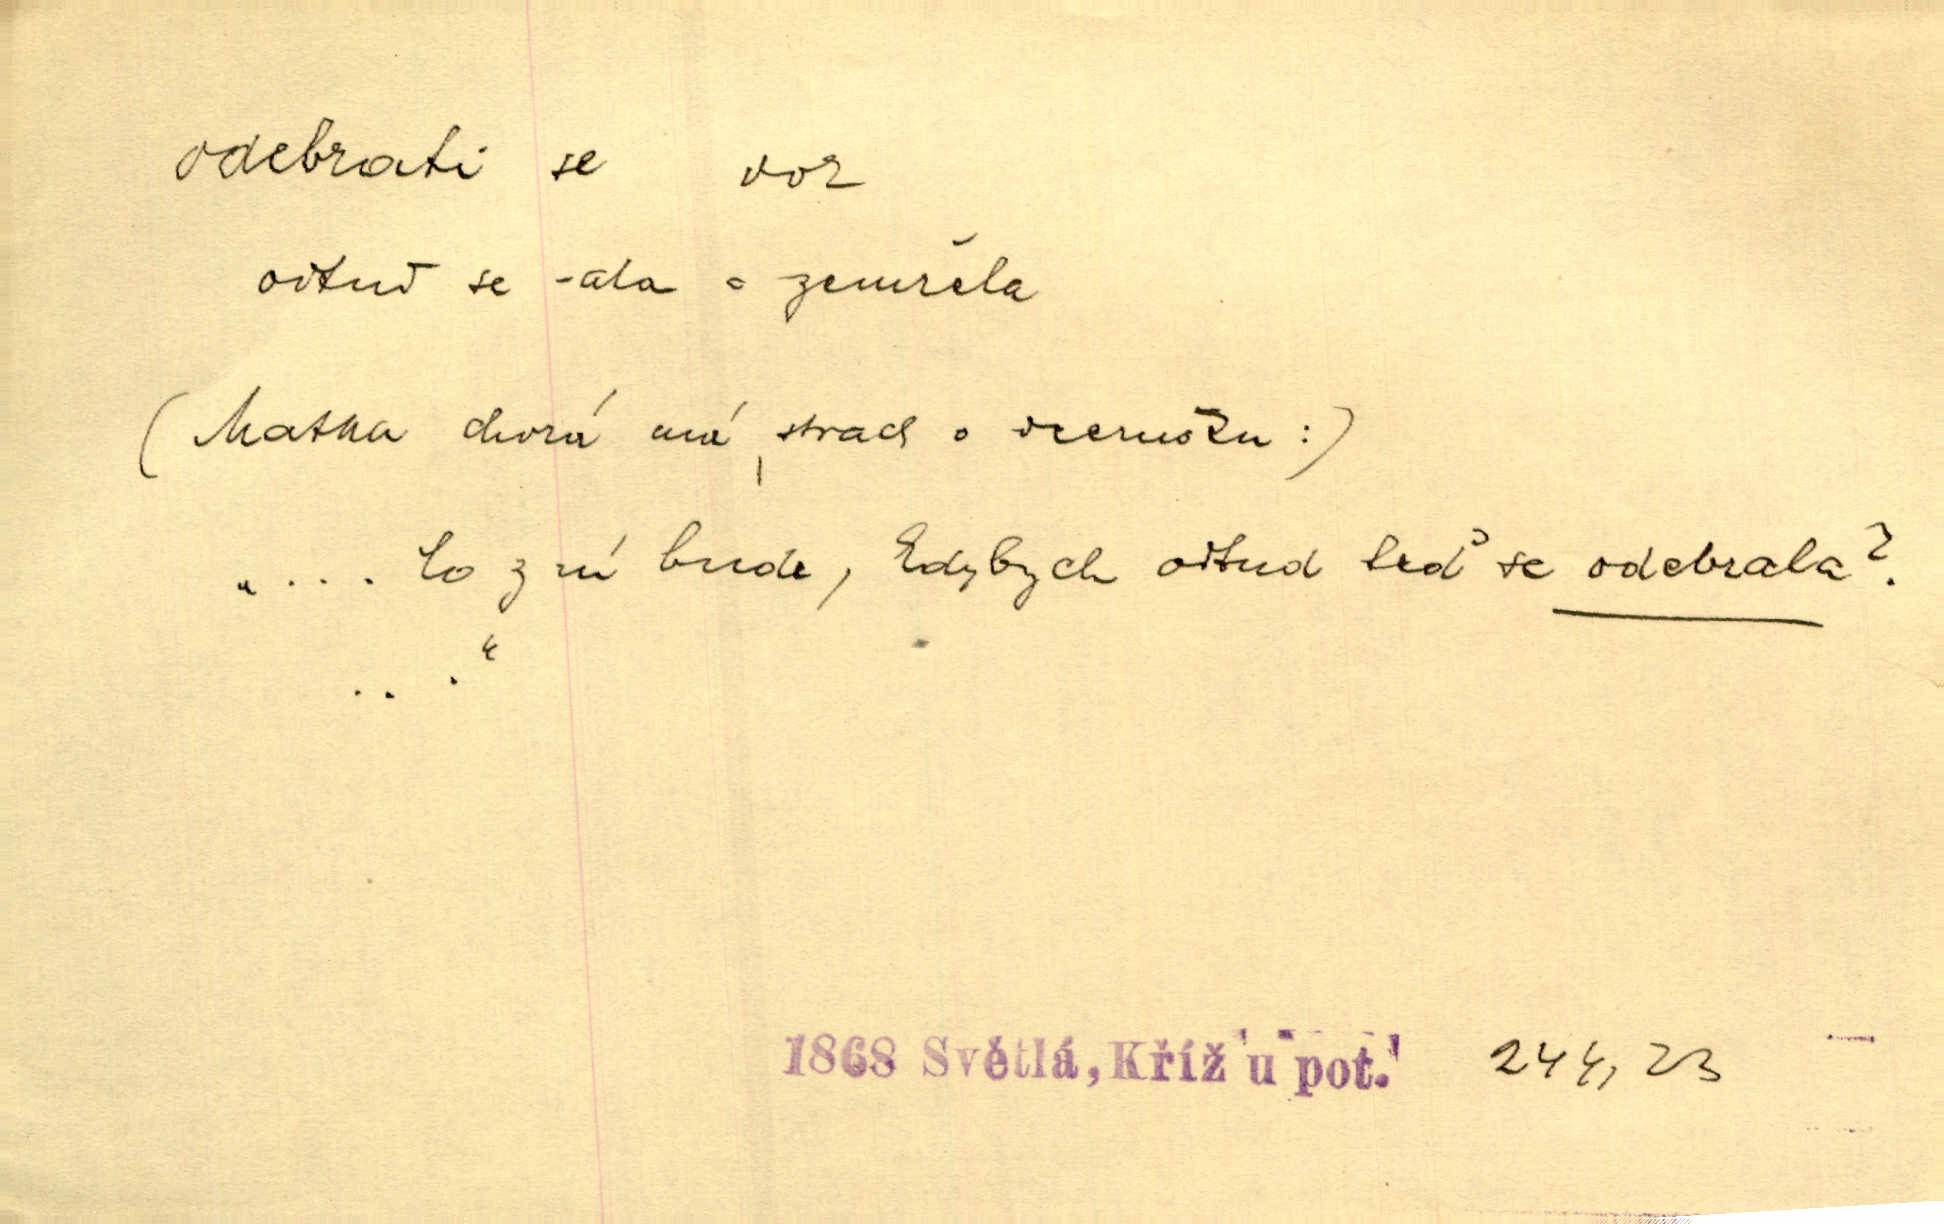 odebrati se vor
odtud se -ala = zemřela
(Matka chorá má strach o dcerušku:)
"... co z ní bude, kdybych odtud teď se odebrala?
..."
1868 Světlá, Kříž u pot. 244, 23